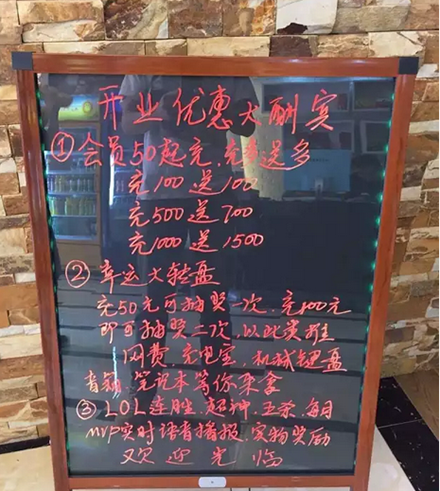 开业优惠大酬宾
① 会员50起充,充多送多
充100送100
充500送700
充1000送1500
② 幸运大转盘
充50元可抽奖一次,充100元
即可抽奖二次,以此类推
网费,充电宝,机械键盘
音箱,笔记本等你来拿
③ LOL连胜,超神,五杀,每日
MVP实时语音播报,实物奖励
欢迎光临